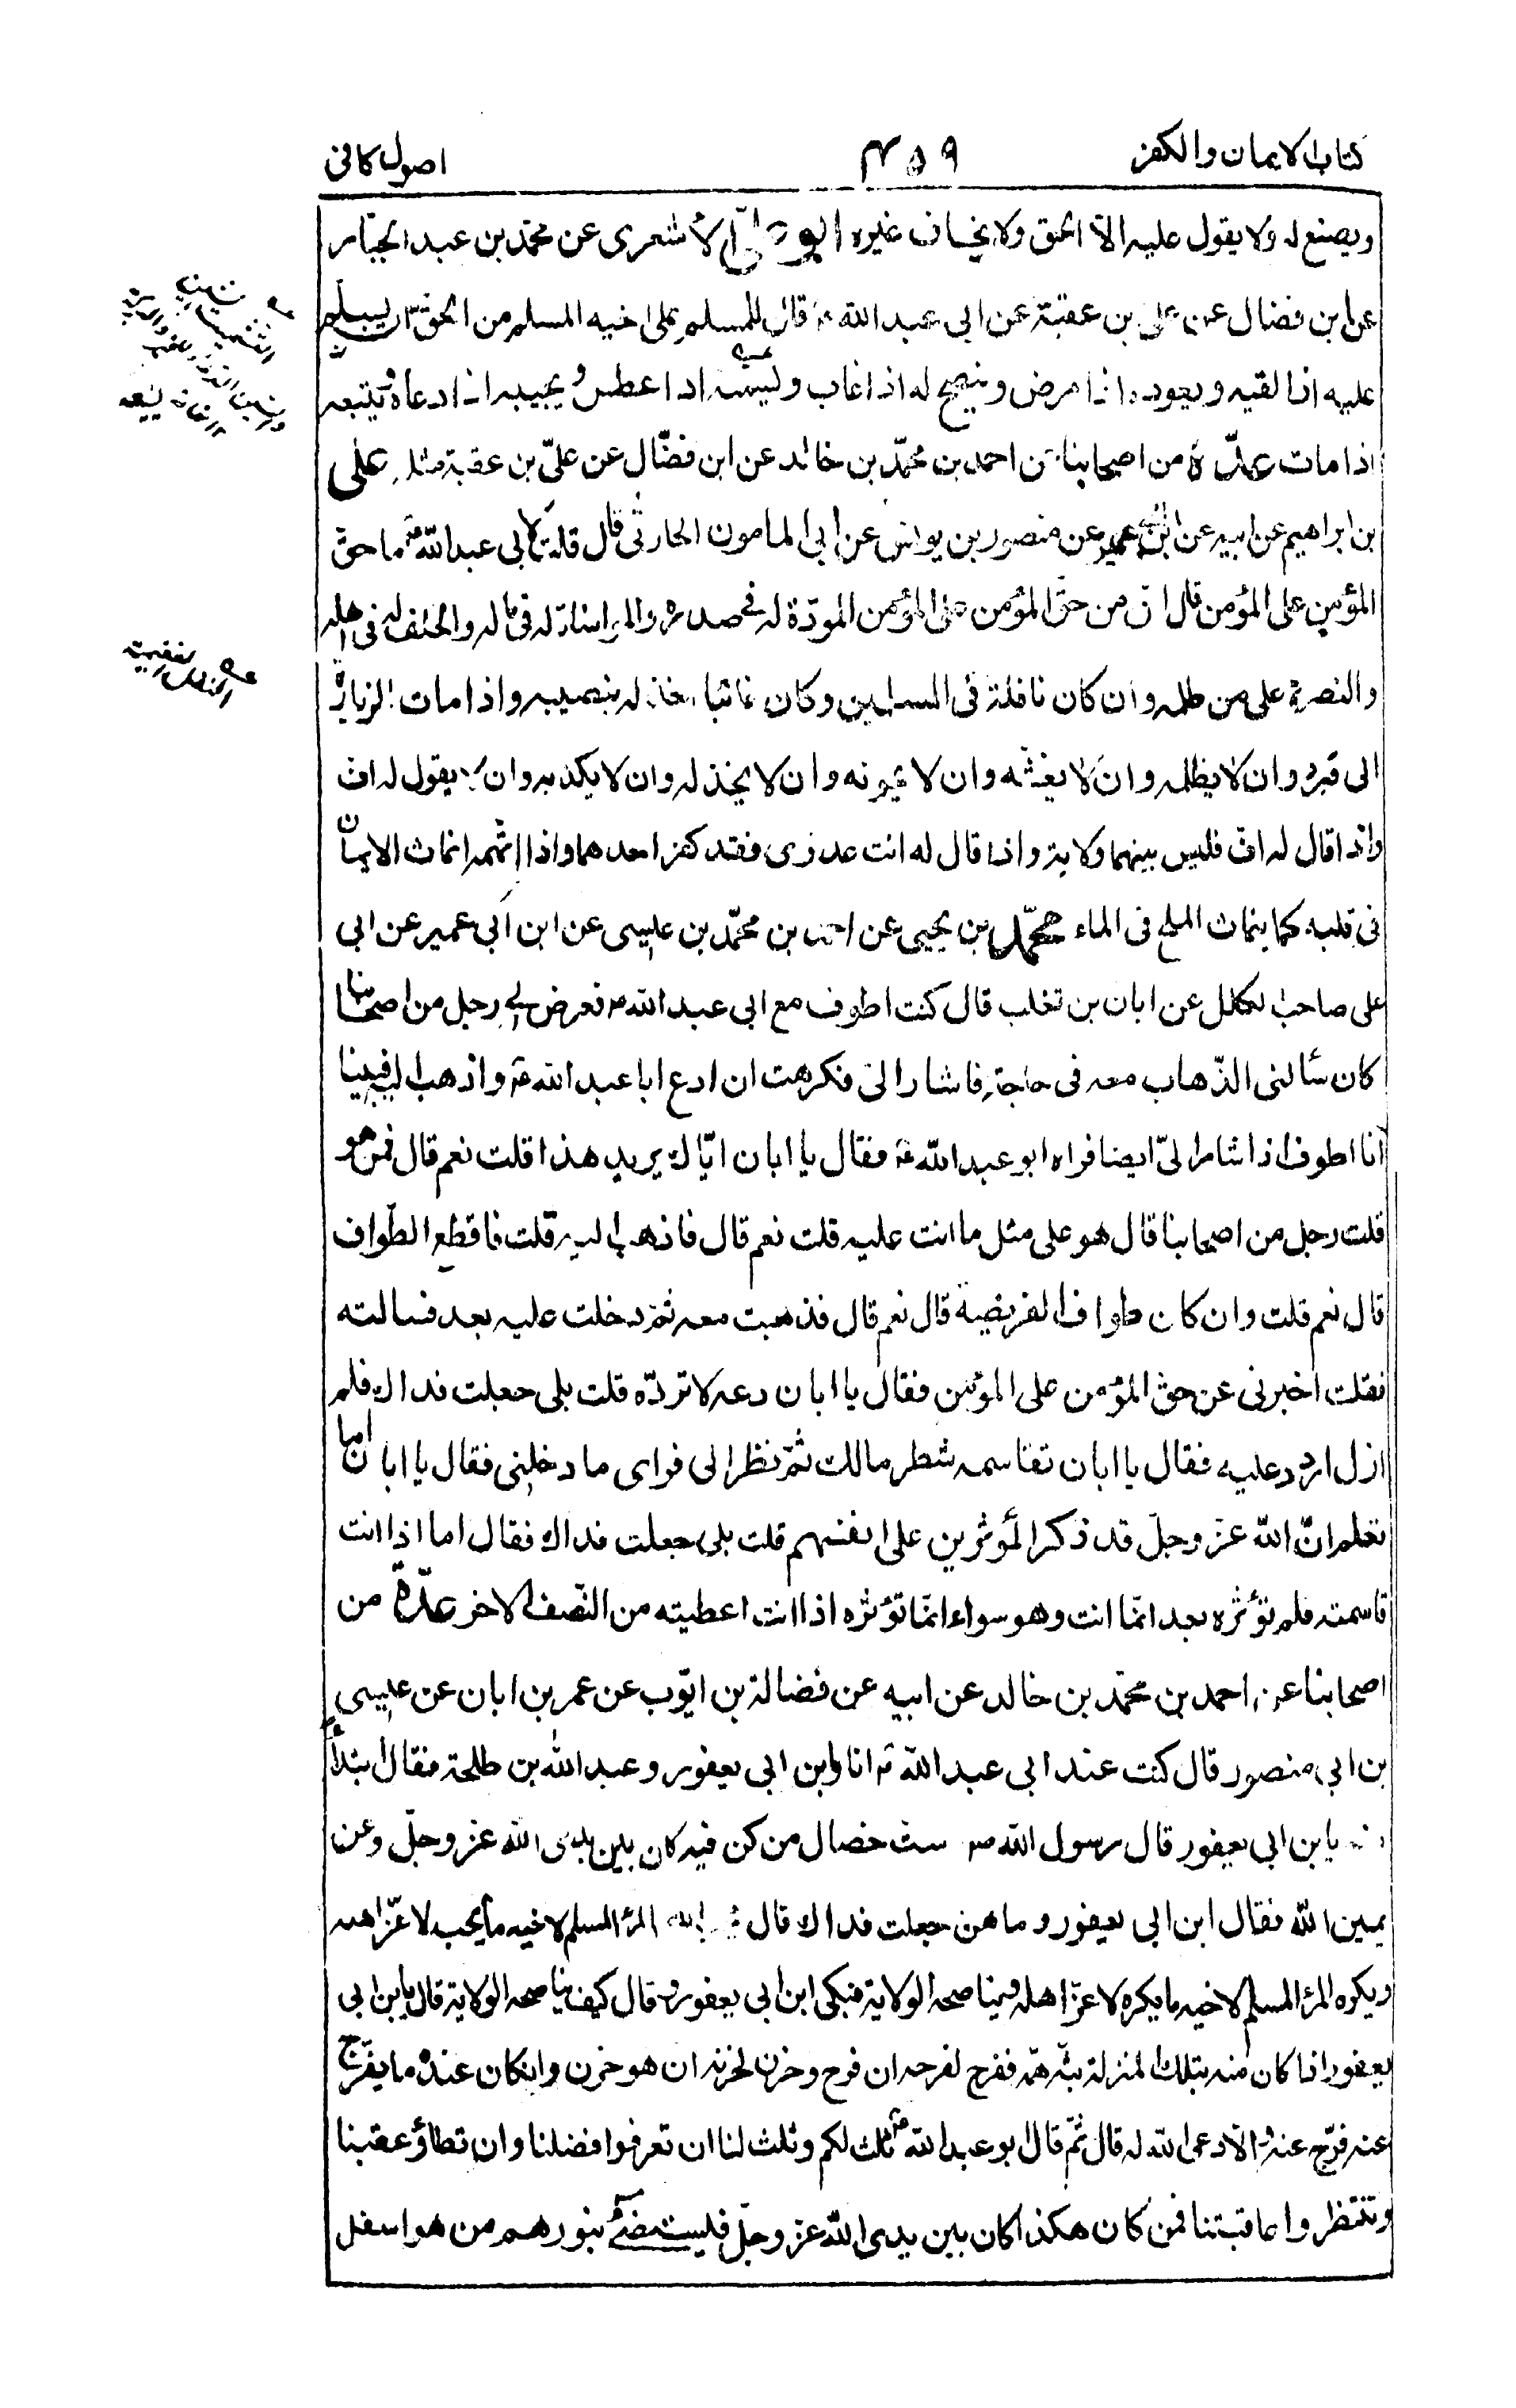 كتاب الايمان والكفر ٤٥٩ اصول كافى
ويصنع له ولا يقول عليه الا الحق ولا يخاف غيره ابو على الاشعرى عن محمد بن عبد الجبار
عن ابن فضال عن على بن عقبة عن ابى عبد الله ع قال للمسلم على اخيه المسلم من الحق ان يسلم
عليه اذا لقيه ويعوده اذا مرض وينصح له اذا غاب ويسمته اذا عطس ويجيبه اذا دعاه ويتبعه
اذا مات عدّة من اصحابنا عن احمد بن محمّد بن خالد عن ابن فضّال عن علىّ بن عقبة مثله على
بن ابراهيم عن ابيه عن ابن ابى عمير عن منصور بن يونس عن ابى المامون الحارثى قال قلت لابى عبد الله ع ما حق
المؤمن على المؤمن قال ان من حق المؤمن على المؤمن المودّة له فى صدره والمواساة له فى ماله والخلف له فى اهله
والنصرة له على من ظلمه وان كان نافلة فى المسلمين وكان غائبا اخذ له بنصيبه واذا مات الزيارة
الى قبره وان لا يظلمه وان لا يغشه وان لا يخونه وان لا يخذله وان لا يكذبه وان لا يقول له اف
واذا قال له اف فليس بينهما ولاية واذا قال له انت عدوى فقد كفر احدهما واذا اتهمه انماث الايمان
فى قلبه كما ينماث الملح فى الماء محمّد بن يحيى عن احمد بن محمّد بن عيسى عن ابن ابى عمير عن ابى
على صاحب الكلل عن ابان بن تغلب قال كنت اطوف مع ابى عبد الله ع فعرض لى رجل من اصحابنا
كان سألنى الذّهاب معه فى حاجة فاشار الىّ فكرهت ان ادع ابا عبد الله ع واذهب اليه فبينا
انا اطوف اذ اشار الىّ ايضا فراه ابو عبد الله ع فقال يا ابان ايّاك يريد هذا قلت نعم قال فمن هو
قلت رجل من اصحابنا قال هو على مثل ما انت عليه قلت نعم قال فاذهب اليه قلت فاقطع الطواف
قال نعم قلت وان كان طواف الفريضة قال نعم قال فذهبت معه ثم دخلت عليه بعد فسالته
فقلت اخبرنى عن حق المؤمن على المؤمن فقال يا ابان دعه لا تردّه قلت بلى جعلت فداك فلم
ازل اردد عليه فقال يا ابان تقاسمه شطر مالك ثمّ نظر الى فراى ما دخلنى فقال يا ابان اما
تعلم انّ الله عزّ وجلّ قد ذكر المؤثرين على انفسهم قلت بلى جعلت فداك فقال اما اذا انت
قاسمته فلم تؤثره بعد انّما انت وهو سواء انّما تؤثره اذا انت اعطيته من النّصف الاخر عدّة من
اصحابنا عن احمد بن محمّد بن خالد عن ابيه عن فضالة بن ايّوب عن عمر بن ابان عن عيسى
بن ابى منصور قال كنت عند ابى عبد الله ع انا وابن ابى يعفور وعبد الله بن طلحة فقال ابتداء
منه يا بن ابى يعفور قال رسول الله ص ست خصال من كن فيه كان بين يدى الله عزّ وجلّ وعن
يمين الله فقال ابن ابى يعفور وما هن جعلت فداك قال يحب المرء المسلم لاخيه ما يحب لاعزّ اهله
ويكره المرء المسلم لاخيه ما يكره لاعزّ اهله ويناصحه الولاية فبكى ابن ابى يعفور وقال كيف يناصحه الولاية قال يا بن ابى
يعفور اذا كان منه بتلك المنزلة بثّه همّه ففرح لفرحه ان فرح وحزن لحزنه ان هو حزن وان كان عنده ما يفرّج
عنه فرّج عنه والّا دعى الله له قال ثمّ قال ابو عبد الله ع ثلث لكم وثلث لنا ان تعرفوا فضلنا وان تطاؤ عقبنا
وتنتظروا عاقبتنا فمن كان هكذا كان بين يدى الله عزّ وجلّ فليستضئ بنورهم من هو اسفل